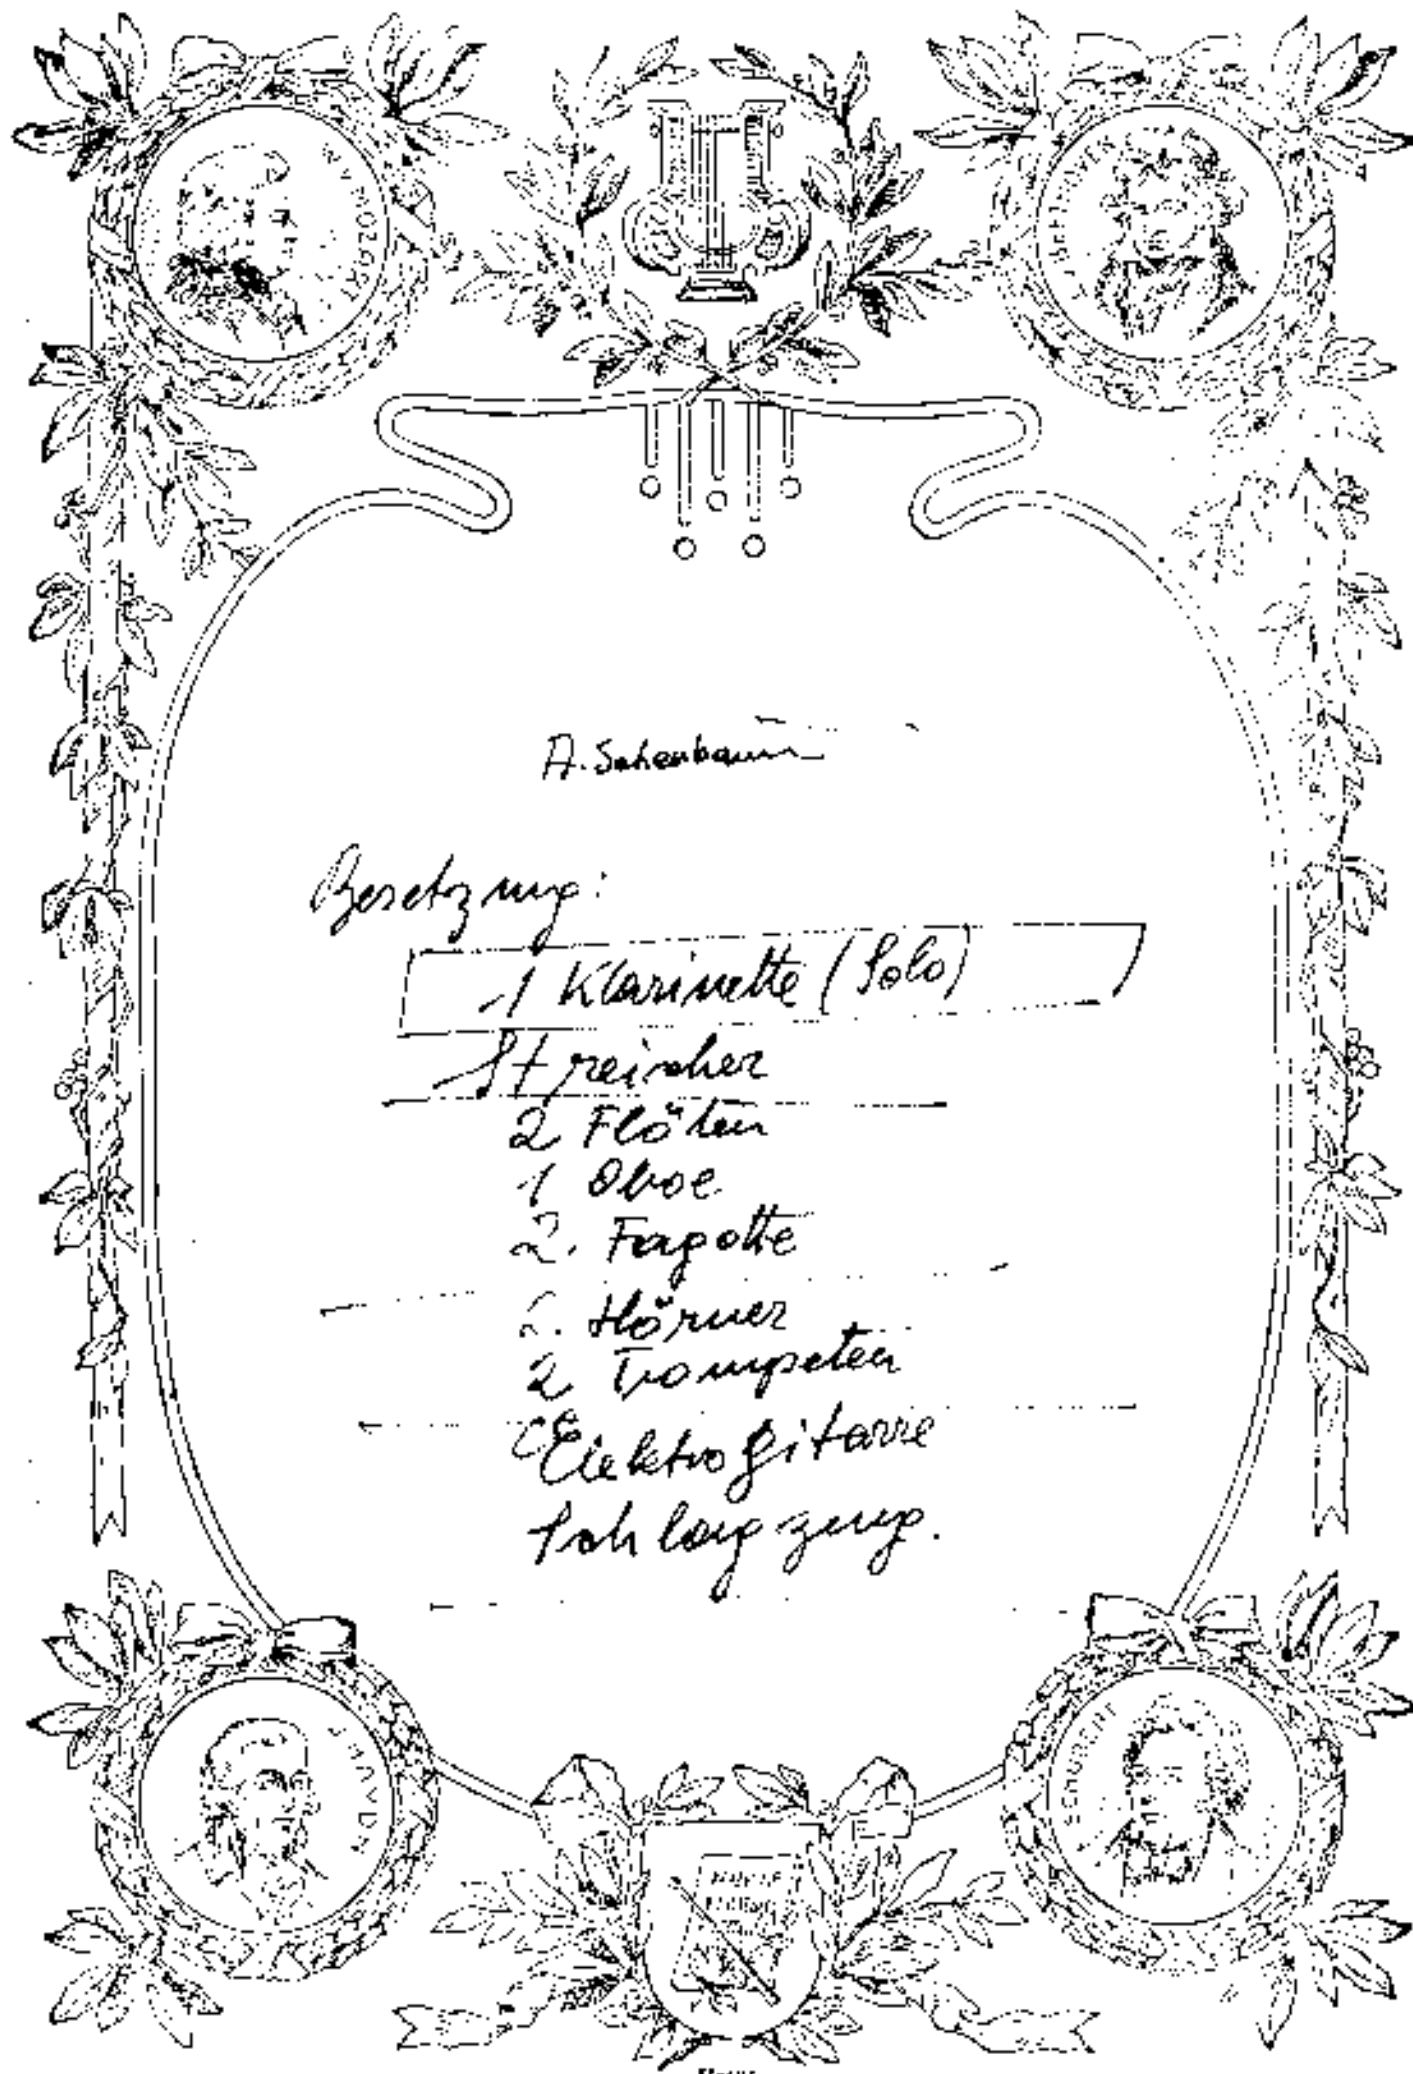 W. A. MOZART
BEETHOVEN
A. Schenbaum
Besetzung:
1 Klarinette (Solo)
Streicher
2 Flöten
1 Oboe
2. Fagotte
2. Hörner
2 Trompeten
Elektrogitarre
Schlagzeug.
HAYDN
SCHUBERT